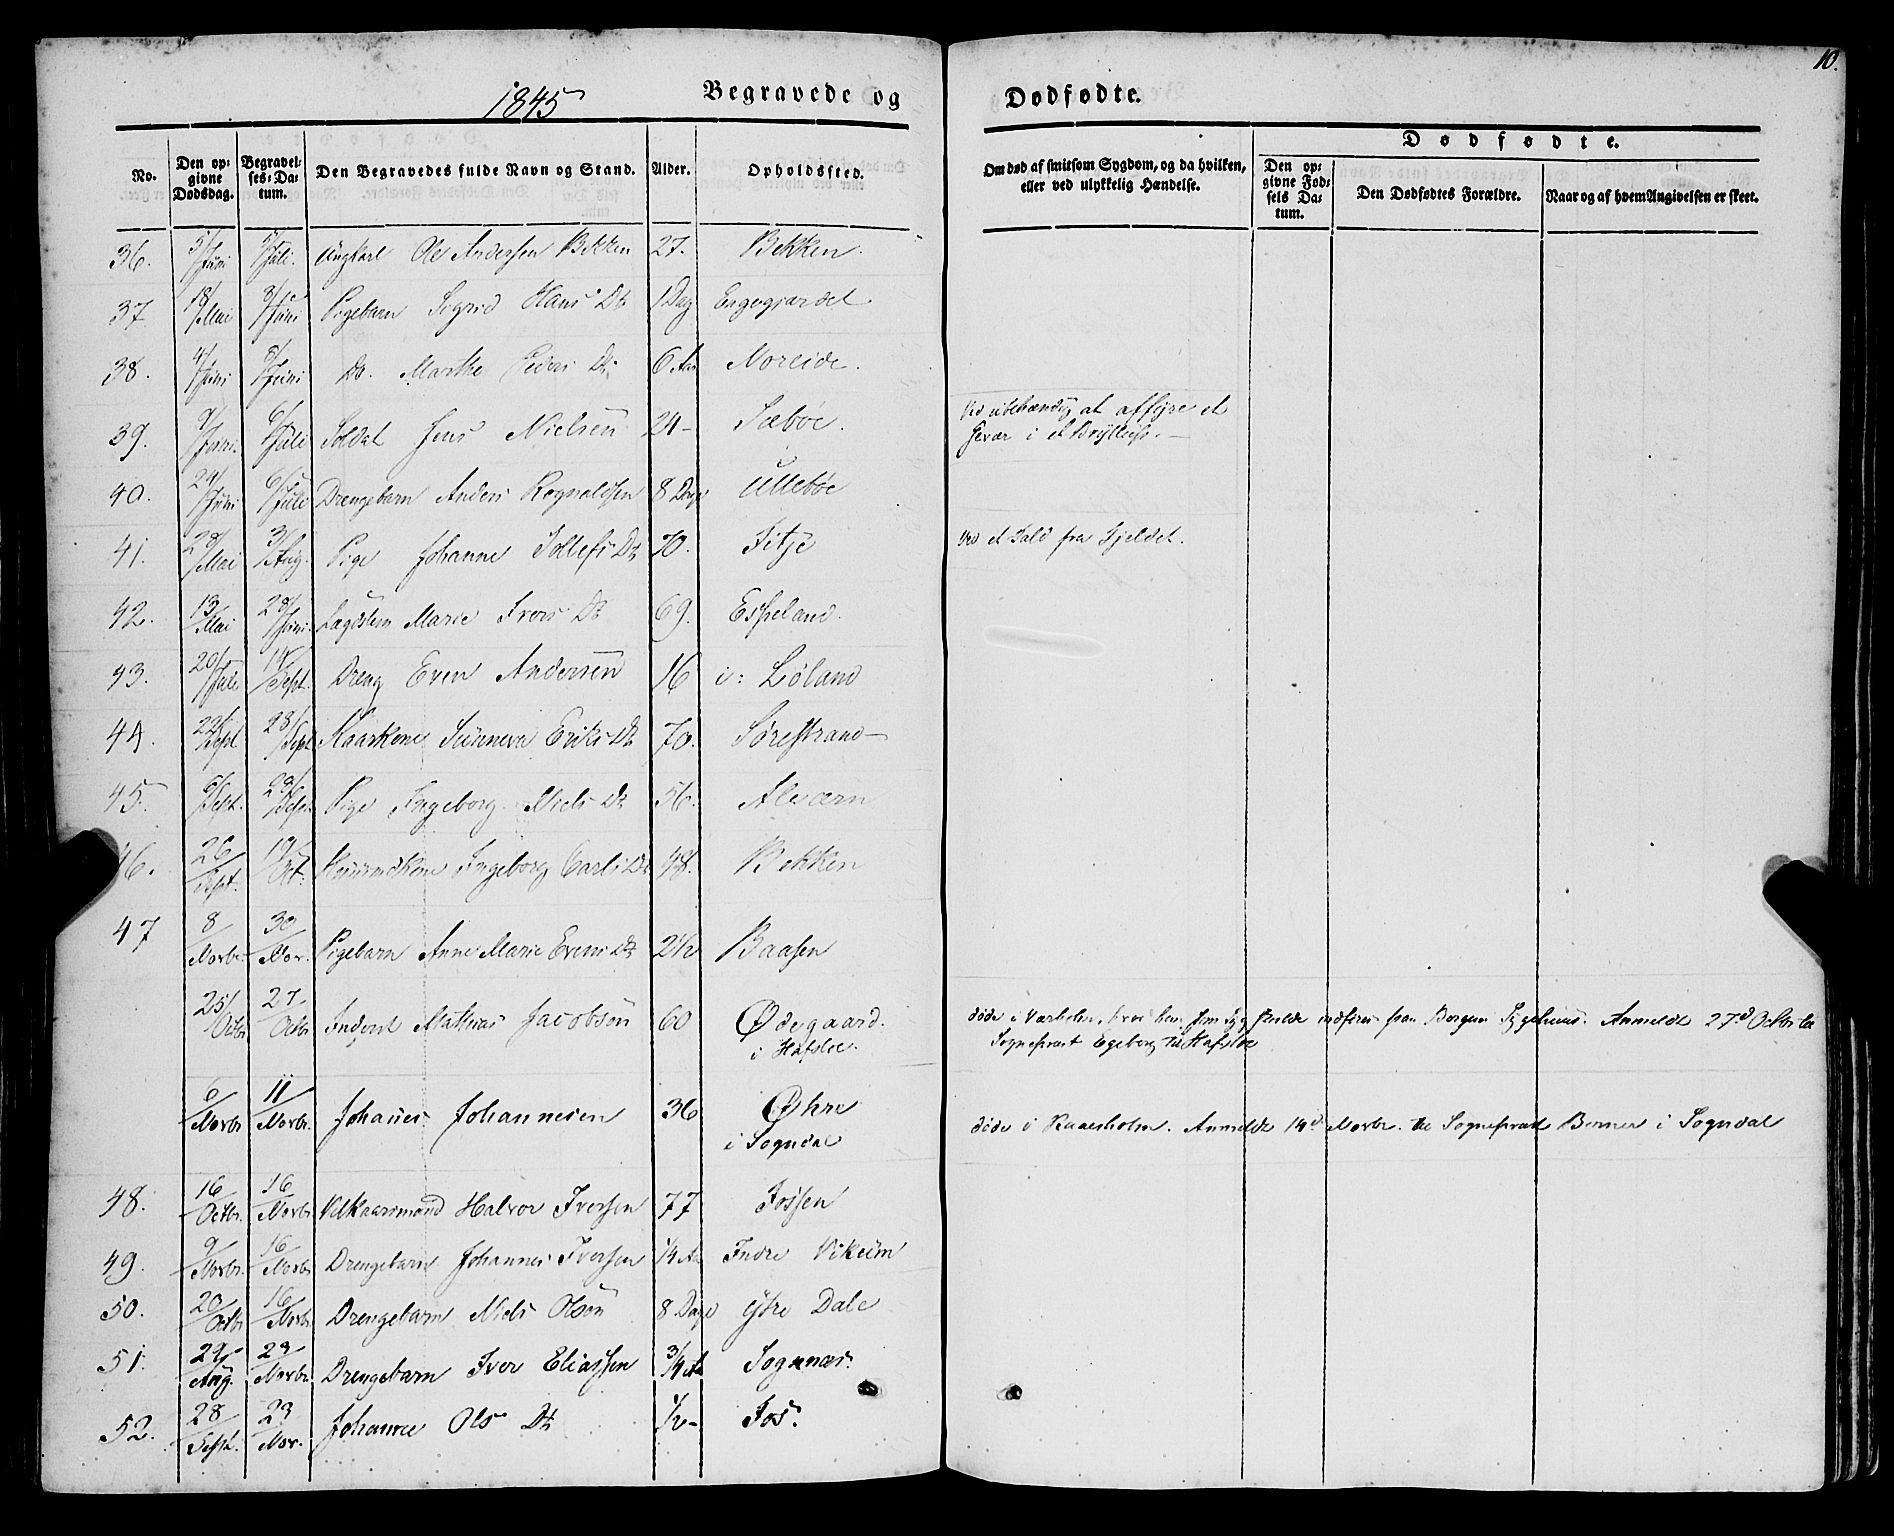 10.
1845
Begravede og
Dødfødte.
No.
Den op=
givne
Dødsdag.
Begravel=
ses=Da=
tum.
Den Begravedes fulde Navn og Stand.
Alder.
Opholdssted.
Om død af smitsom Sygdom, og da hvilken,
eller ved ulykkelig Hændelse.
Dødfødte.
Den op=
givne Fød=
sels Da=
tum.
Den Dødfødtes Forældre.
Naar og af hvem Angivelsen er skeet.
36. 5/Juni /Juli. Ungkarl Ole Andersen Bekken 27. Bekken.
37 18/Mai 3/Juni Pigebarn Sigrid Hans Dr 1 Dag Engegjærdet
38. 4/Juni 8/Juni Do. Marthe Peders Dr 6 Aar Noreide.
39. 9/Juni. 6/Juli Soldat Jens Nielsen 24- Sæbøe. Ved ubehændig at affyre et
Gevær i et Bryllup.
40. 24/Juni 6/Juli Drengebarn Anders Rognaldsen 8 Dage Ullebøe
41. 28/Mai 3/Aug. Pige Johanne Tollefs Dr 70. Fitje ved et Fald fra Fjeldet.
42. 13/Mai 28/Juni. Lægdslem Marie Ivers Dr 69. Espeland.
43. 20/Juli 14/Sept. Dreng Even Andersen 16 i: Løland
44. 22/Sept 28/Sept Kaarkone Sunneva Eriks Dr 70. Sørestrand
45. 6/Sept. 29/Sept. Pige Ingeborg Niels Dr 56. Alværn
46. 26/Sept. 19/Oct. Huusmdkone Ingeborg Carls Dr 48. Bekken
47 8/Novbr. 30/Nov. Pigebarn Anne Marie Evens Dr 2½ Baasen
25/Octbr 27/Octbr Inderst Mathias Jacobsen 60 Ødegaard.
i Hafsloe. døde i Værholm, hvor han som syg skulde indføres fra Bergens Sygehuus. Anmeldt 27d Octbr til
Sognepræst Egeberg til Hafsloe
6/Novbr 11/Novbr. Johannes Johannesen 36 Øhre
i Sogndal døde i Raaesholm. Anmeldt 14d Novbr. til Sognepræst Berner i Sogndal
48. 16/Octbr. 16/Novbr Vilkaarsmand Halvor Iversen 77 Fossen
49. 9/Novbr. 16/Novbr Drengebarn Johannes Iversen ¼ Aar Indre Vikum
50. 20/Octbr 16/Novbr Drengebarn Niels Olsen 8 Dage Ytre Dale
51. 29/Aug. 23/Novbr Drengebarn Iver Eliassen ¾ Aar Sognnæs.
52. 28/Sept. 23/Nov. Johanne Ols Dr ½- Fos.